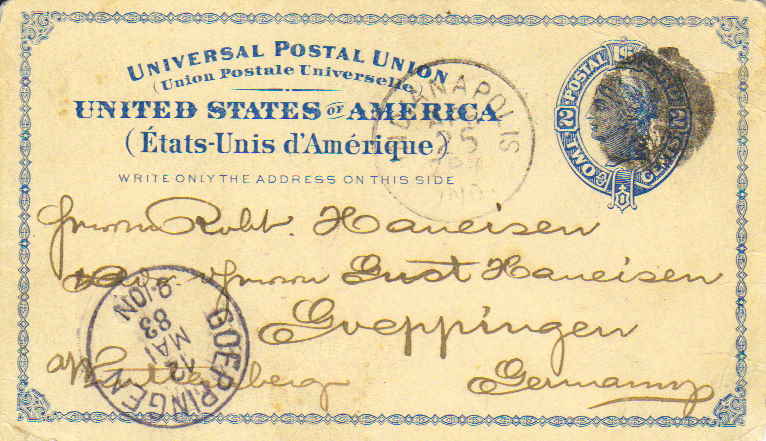 UNIVERSAL POSTAL UNION
(Union Postale Universelle)
UNITED STATES OF AMERICA
(États-Unis d'Amérique)
WRITE ONLY THE ADDRESS ON THIS SIDE
U.S. POSTAL CARD
TWO CENTS
2 2
INDIANAPOLIS
25
IND.
Herrn Robt. Haueisen
Herrn Gust Haueisen
Goeppingen
Württemberg Germany
GOEPPINGEN
12
MAI
83